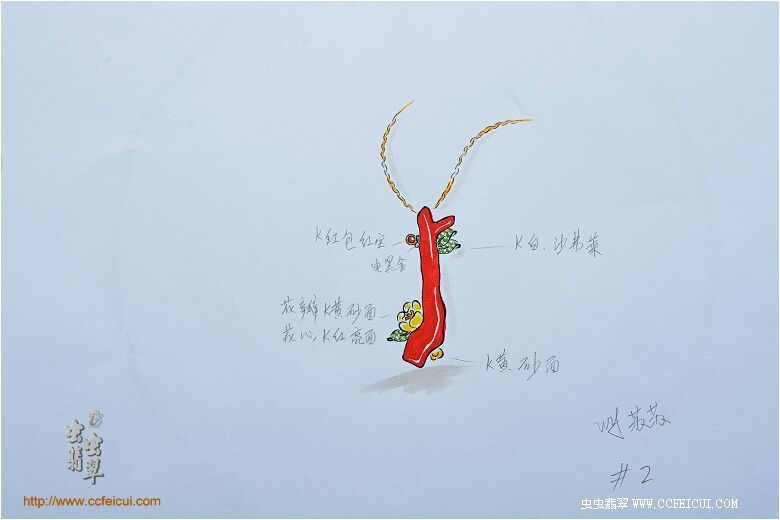 K红包红宝
电黑金
K白、沙弗莱
花瓣K黄砂面
花心K红亮面
K黄砂面
苏苏
#2
虫虫翡翠
http://www.ccfeicui.com
虫虫翡翠 WWW.CCFEICUI.COM